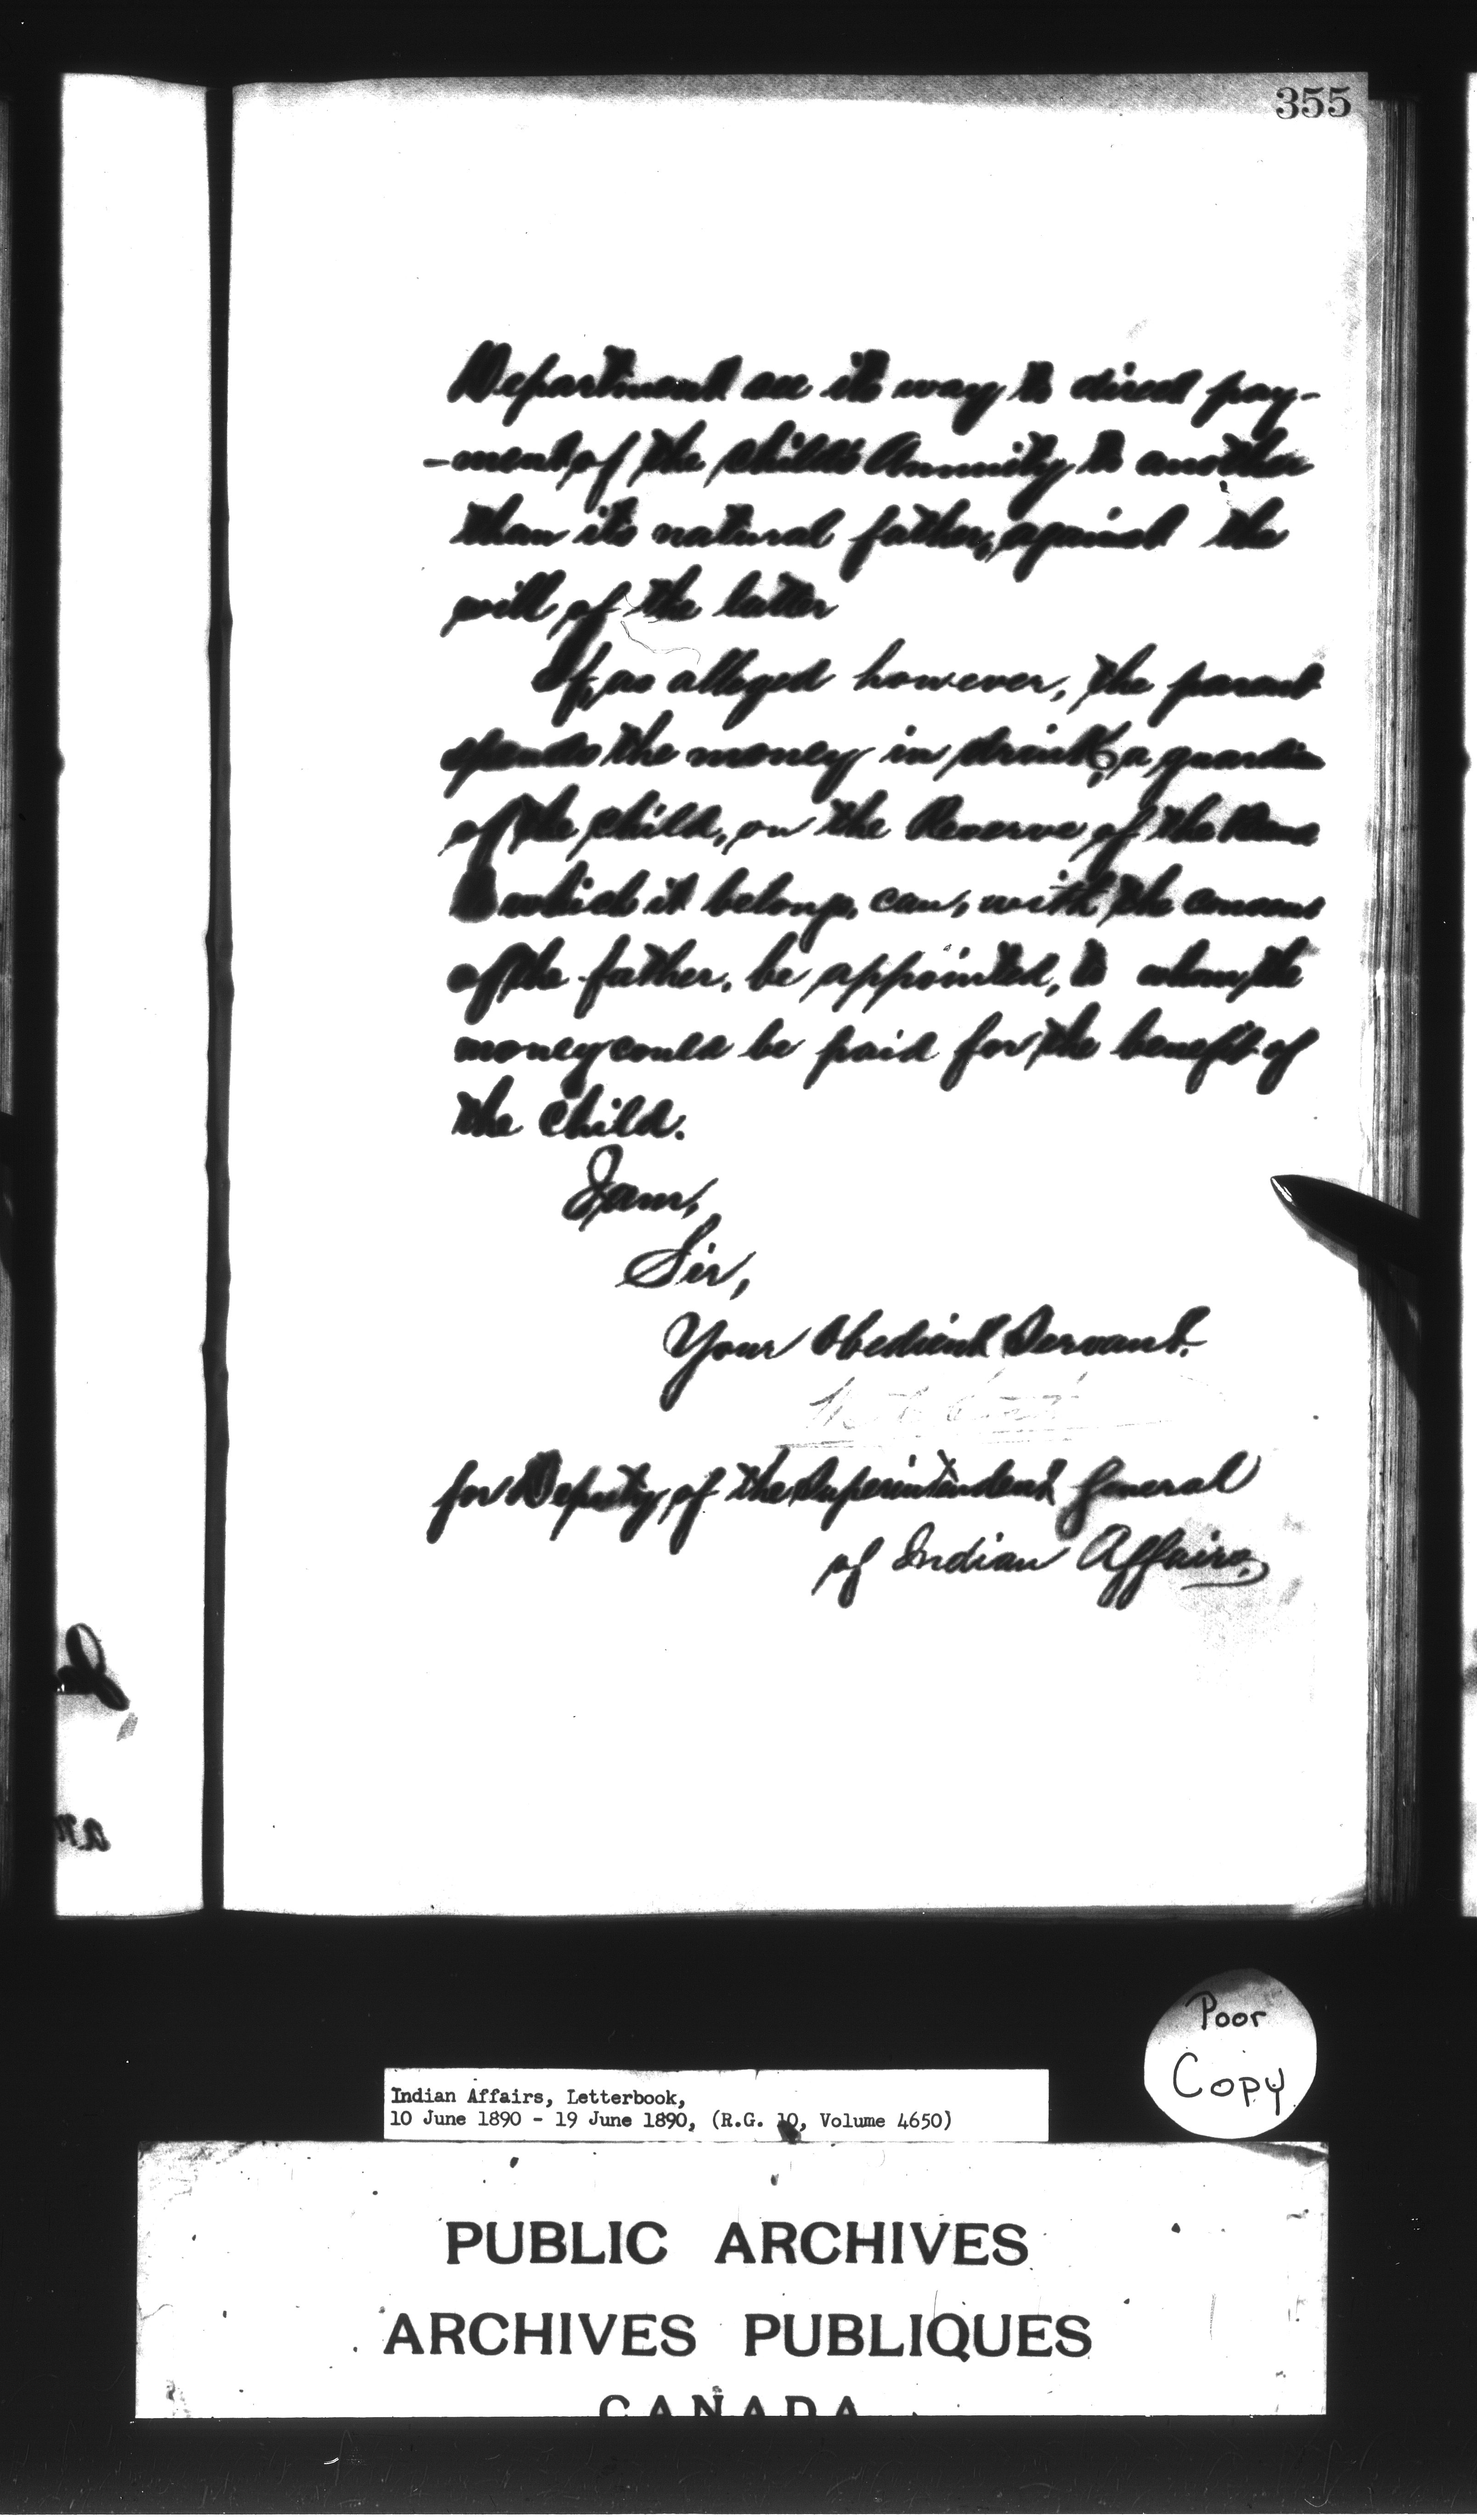 355
Department see its way to direct pay-
-ment of the child's Annuity to another
than its natural father, against the
will of the latter
If, as alleged however, the parent
spends the money in drink, a guardian
of the child, on the Reserve of the Band
to which it belongs, can, with the consent
of the father, be appointed, to whom the
money could be paid for the benefit of
the child.
I am,
Sir,
Your Obedient Servant.
for Deputy of the Superintendent General
of Indian Affairs.
Poor
Copy
Indian Affairs, Letterbook,
10 June 1890 - 19 June 1890, (R.G. 10, Volume 4650)
PUBLIC ARCHIVES
ARCHIVES PUBLIQUES
CANADA